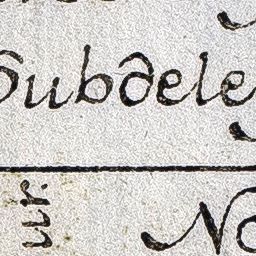 Subdele
ur.
No